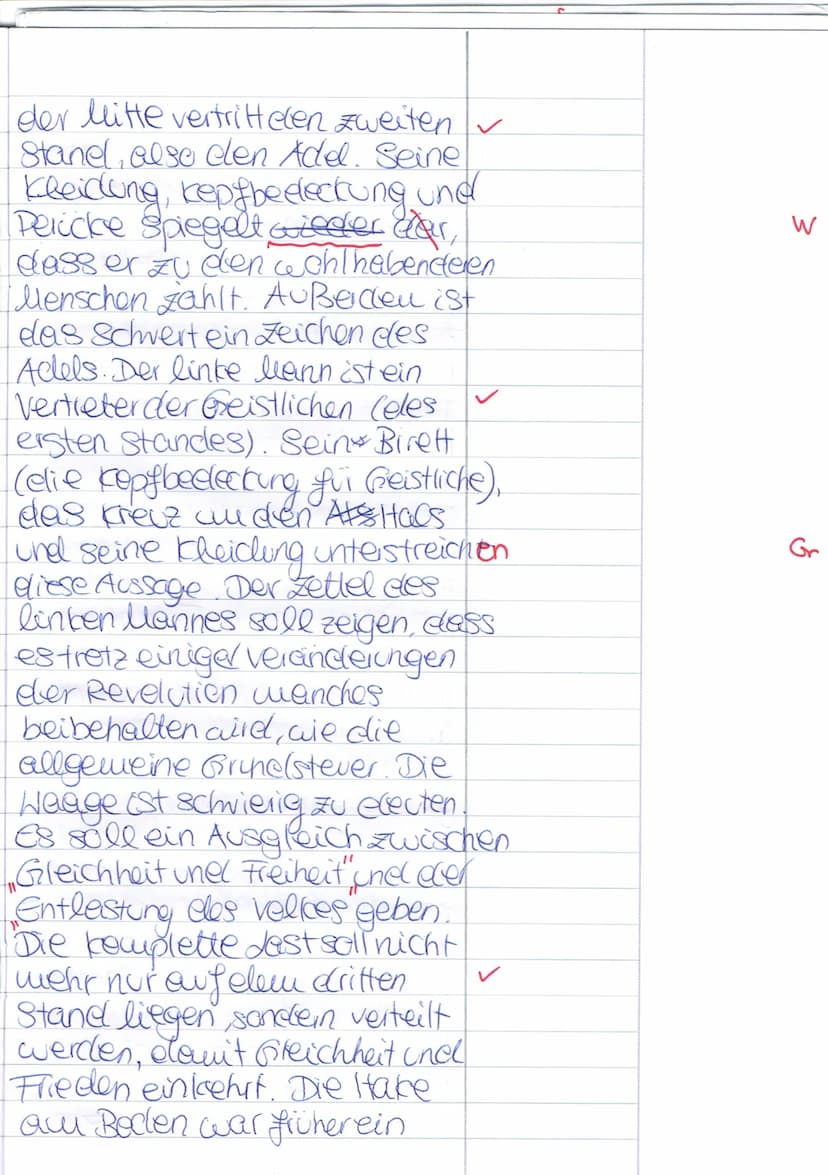 der Mitte vertritt den zweiten ✓
Stand, also den Adel. Seine
Kleidung, Kopfbedeckung und
Perücke spiegelt ~~wieder~~ ~~dar~~, W
dass er zu den wohlhabenderen
Menschen zählt. Außerdem ist
das Schwert ein Zeichen des
Adels. Der linke Mann ist ein
Vertreter der Geistlichen (des ✓
ersten Standes). Sein Birett
(die Kopfbedeckung für Geistliche),
das Kreuz um den Hals
und seine Kleidung unterstreichen Gr
diese Aussage. Der Zettel des
linken Mannes soll zeigen, dass
es trotz einiger Veränderungen
der Revolution manches
beibehalten wird, wie die
allgemeine Grundsteuer. Die
Waage ist schwierig zu deuten.
Es soll ein Ausgleich zwischen
„Gleichheit und Freiheit" und der
„Entlastung des Volkes" geben.
Die komplette Last soll nicht
mehr nur auf dem dritten ✓
Stand liegen, sondern verteilt
werden, damit Gleichheit und
Frieden einkehrt. Die Hake
am Boden war früher ein